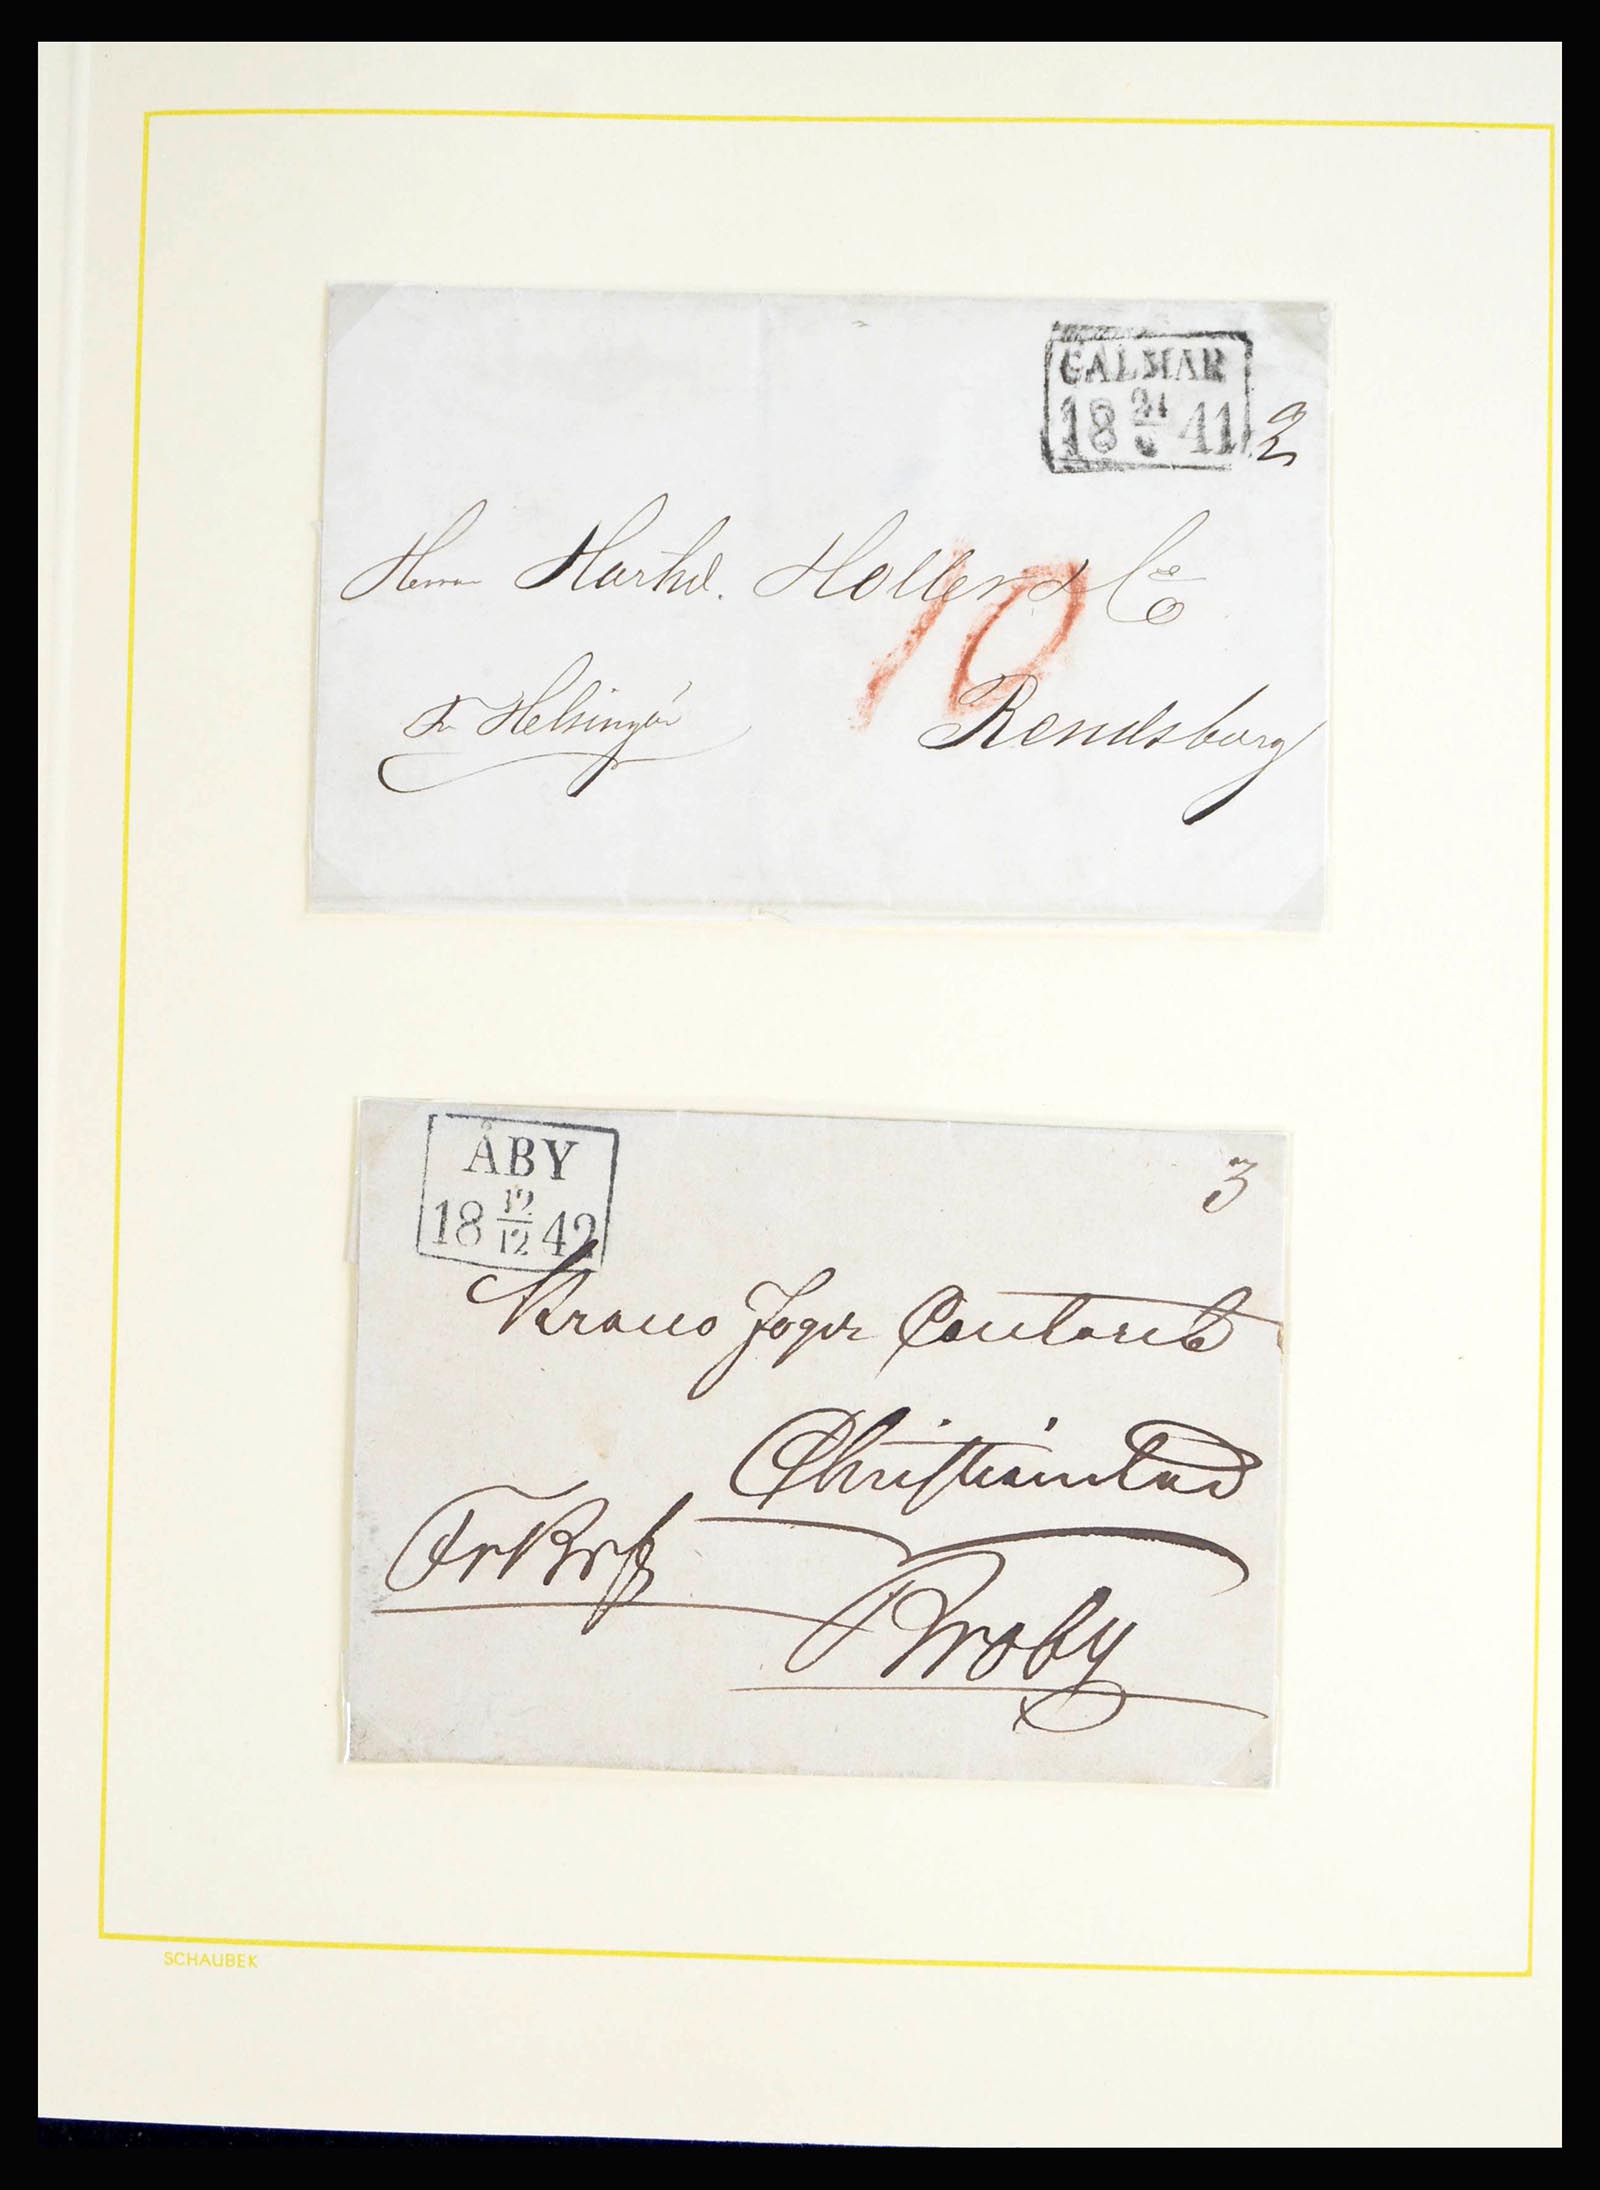 CALMAR
18 24 41
2
Herrar Hartvd. Holler & Co
10
Fr Helsingör
Rendsburg
ÅBY
18 12/12 42
3
Krono Fogde Contoret
Christianstad
Fr Brf
Broby
SCHAUBEK